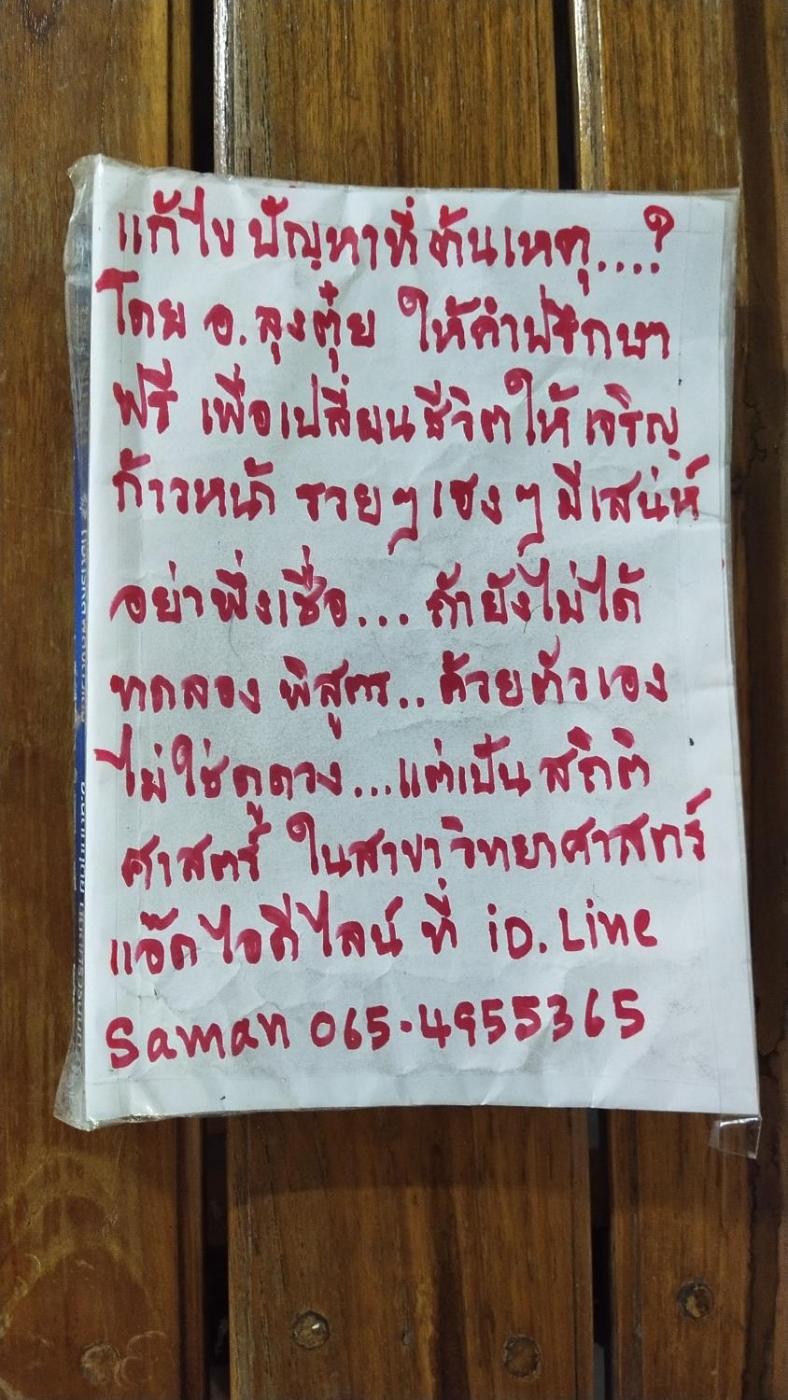 แก้ไขปัญหาที่ต้นเหตุ....?
โดย อ.ลุงตุ๋ย ให้คำปรึกษา
ฟรี เพื่อเปลี่ยนชีวิตให้เจริญ
ก้าวหน้า รวยๆ เฮงๆ มีเสน่ห์
อย่าพึ่งเชื่อ... ถ้ายังไม่ได้
ทดลอง พิสูตร.. ด้วยตัวเอง
ไม่ใช่ดูดวง...แต่เป็น สถิติ
ศาสตร์ ในสาขาวิทยาศาสตร์
แอ๊ดไอดีไลน์ ที่ iD. Line
Saman 065-4955365